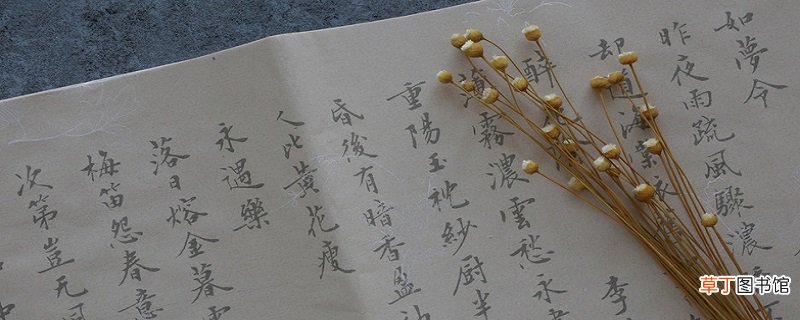 如夢令
昨夜雨疏風驟濃
却道海棠依
醉花 李
薄霧濃雲愁永
重陽玉枕紗厨半
昏後有暗香盈
人比黄花瘦
永遇樂
落日熔金暮
梅笛怨春意
次第豈无風
草丁图书馆